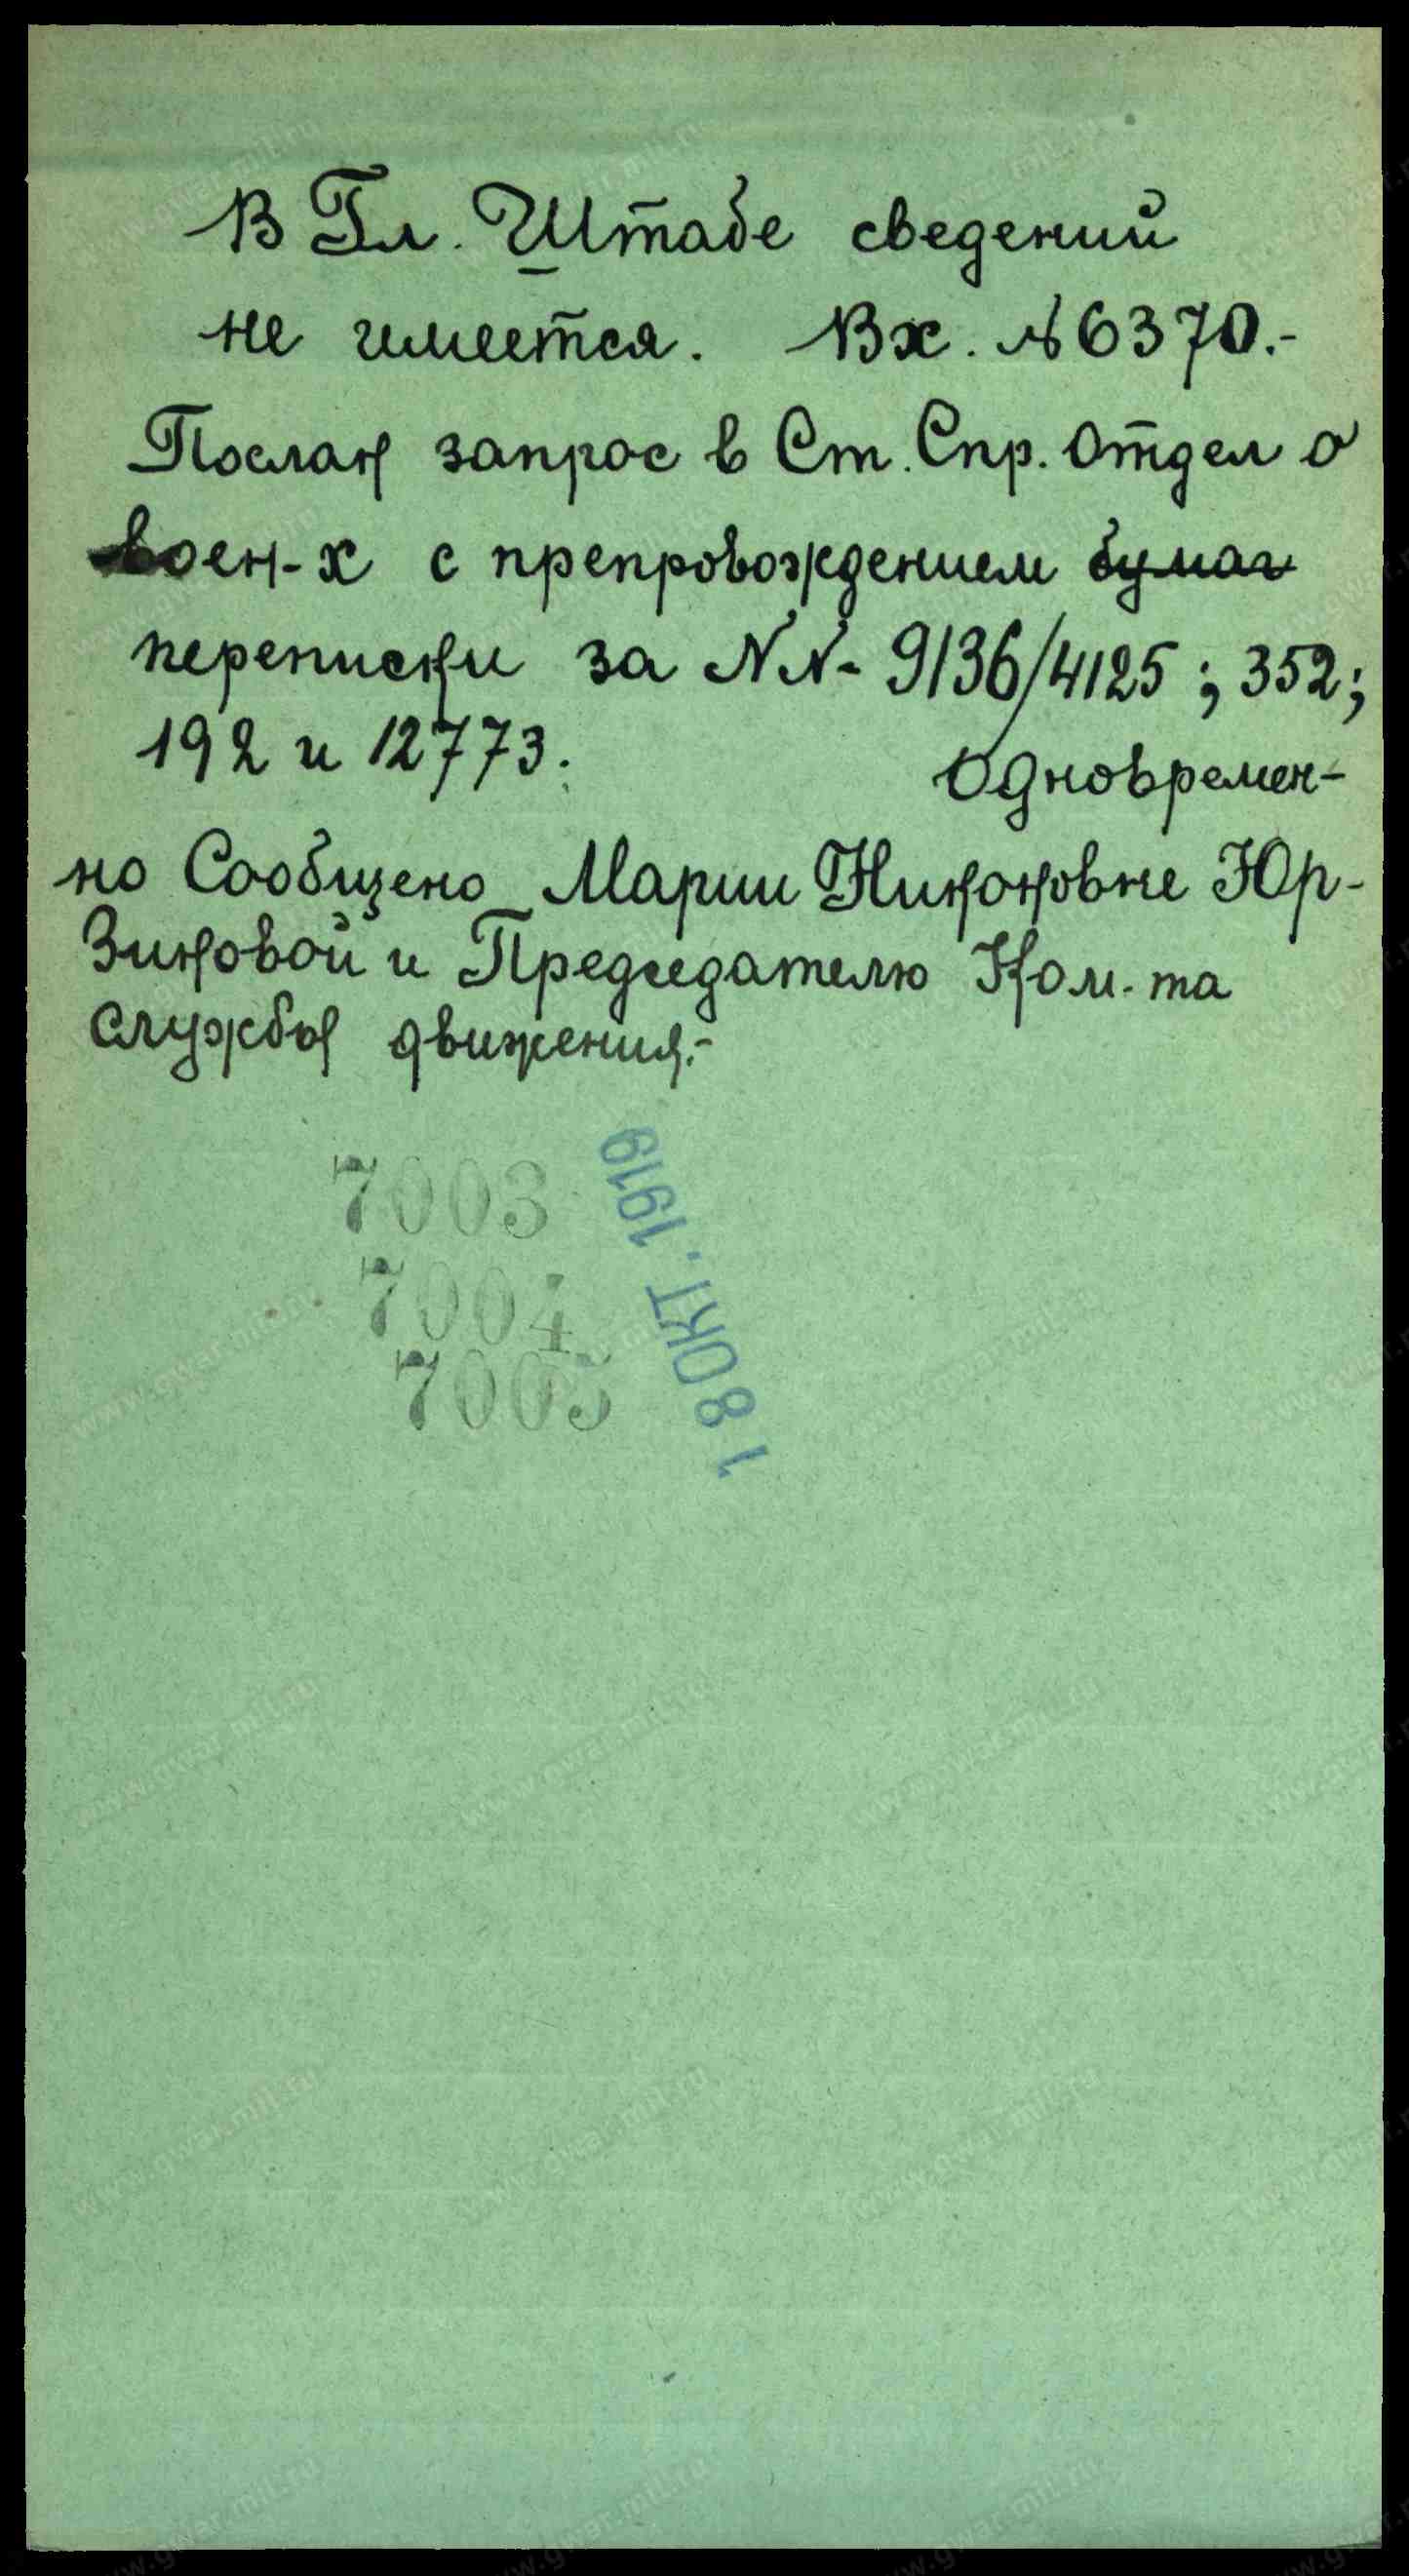 В Гл. Штабе сведений
не имеется. Вх. №6370.-
Послан запрос в Ст. Спр. Отдел о
воен-х с препровождением бумаг
переписки за NN- 9136/4125; 352;
192 и 12773.
Одновремен-
но Сообщено Марии Никоновне Юр-
Зиновой и Председателю Ком-та
службы движения.-
7003
7004
7005
18 ОКТ. 1919
www.gwar.mil.ru